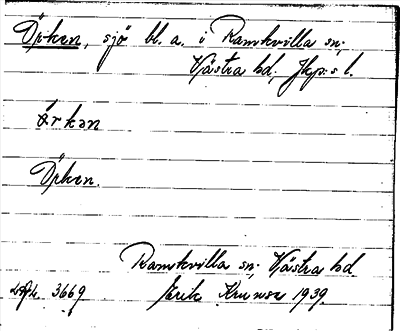 Örken, sjö bl. a. i Ramkvilla sn;
Västra hd, Jkp:s l.
Örken.
Ramkvilla sn; Västra hd.
3669 Erik 1939.